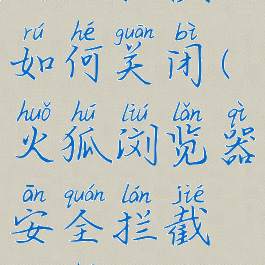 rú hé guān bì
如何关闭(
huǒ hú liú lǎn qì
火狐浏览器
ān quán lán jié
安全拦截